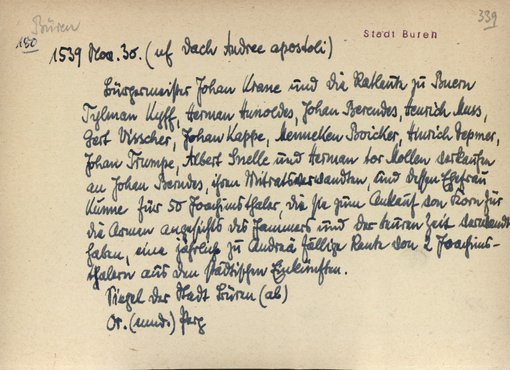 Büren
339
180
Stadt Buren
1539 Nov. 30. (uf dach Andree apostoli)
Bürgermeister Johan Krane und die Ratleute zu Buern
Tylman Kyff, Herman Hunoldes, Johan Berendes, Henrich Muss,
Gert Visscher, Johan Kappe, Menneken Boicker, Hinrich Depmer,
Johan Trumpe, Albert Snelle und Herman tor Mollen verkaufen
an Johan Berndes, ihren Mitratsverwandten, und dessen Ehefrau
Kunne für 50 Joachimsthaler, die sie zum Ankauf von Korn für
die Armen angesichts des Jammers und der teuren Zeit verwandt
haben, eine jährlich zu Andreä fällige Rente von 2 Joachims-
thalern aus den städtischen Einkünften.
Siegel der Stadt Büren (ab)
Or. (mnd.) Perg